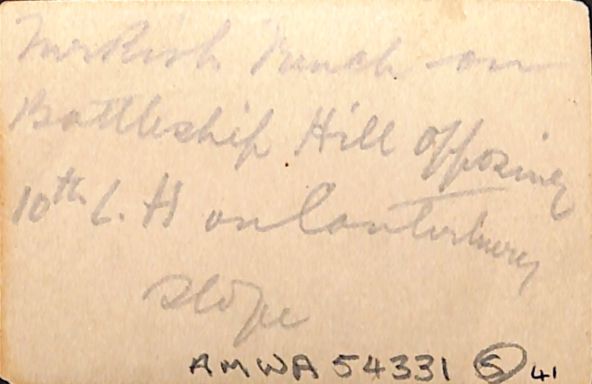 Turkish Trench on
Battleship Hill opposing
10th L. H on Canterbury
slope
AMWA 54331 5 41